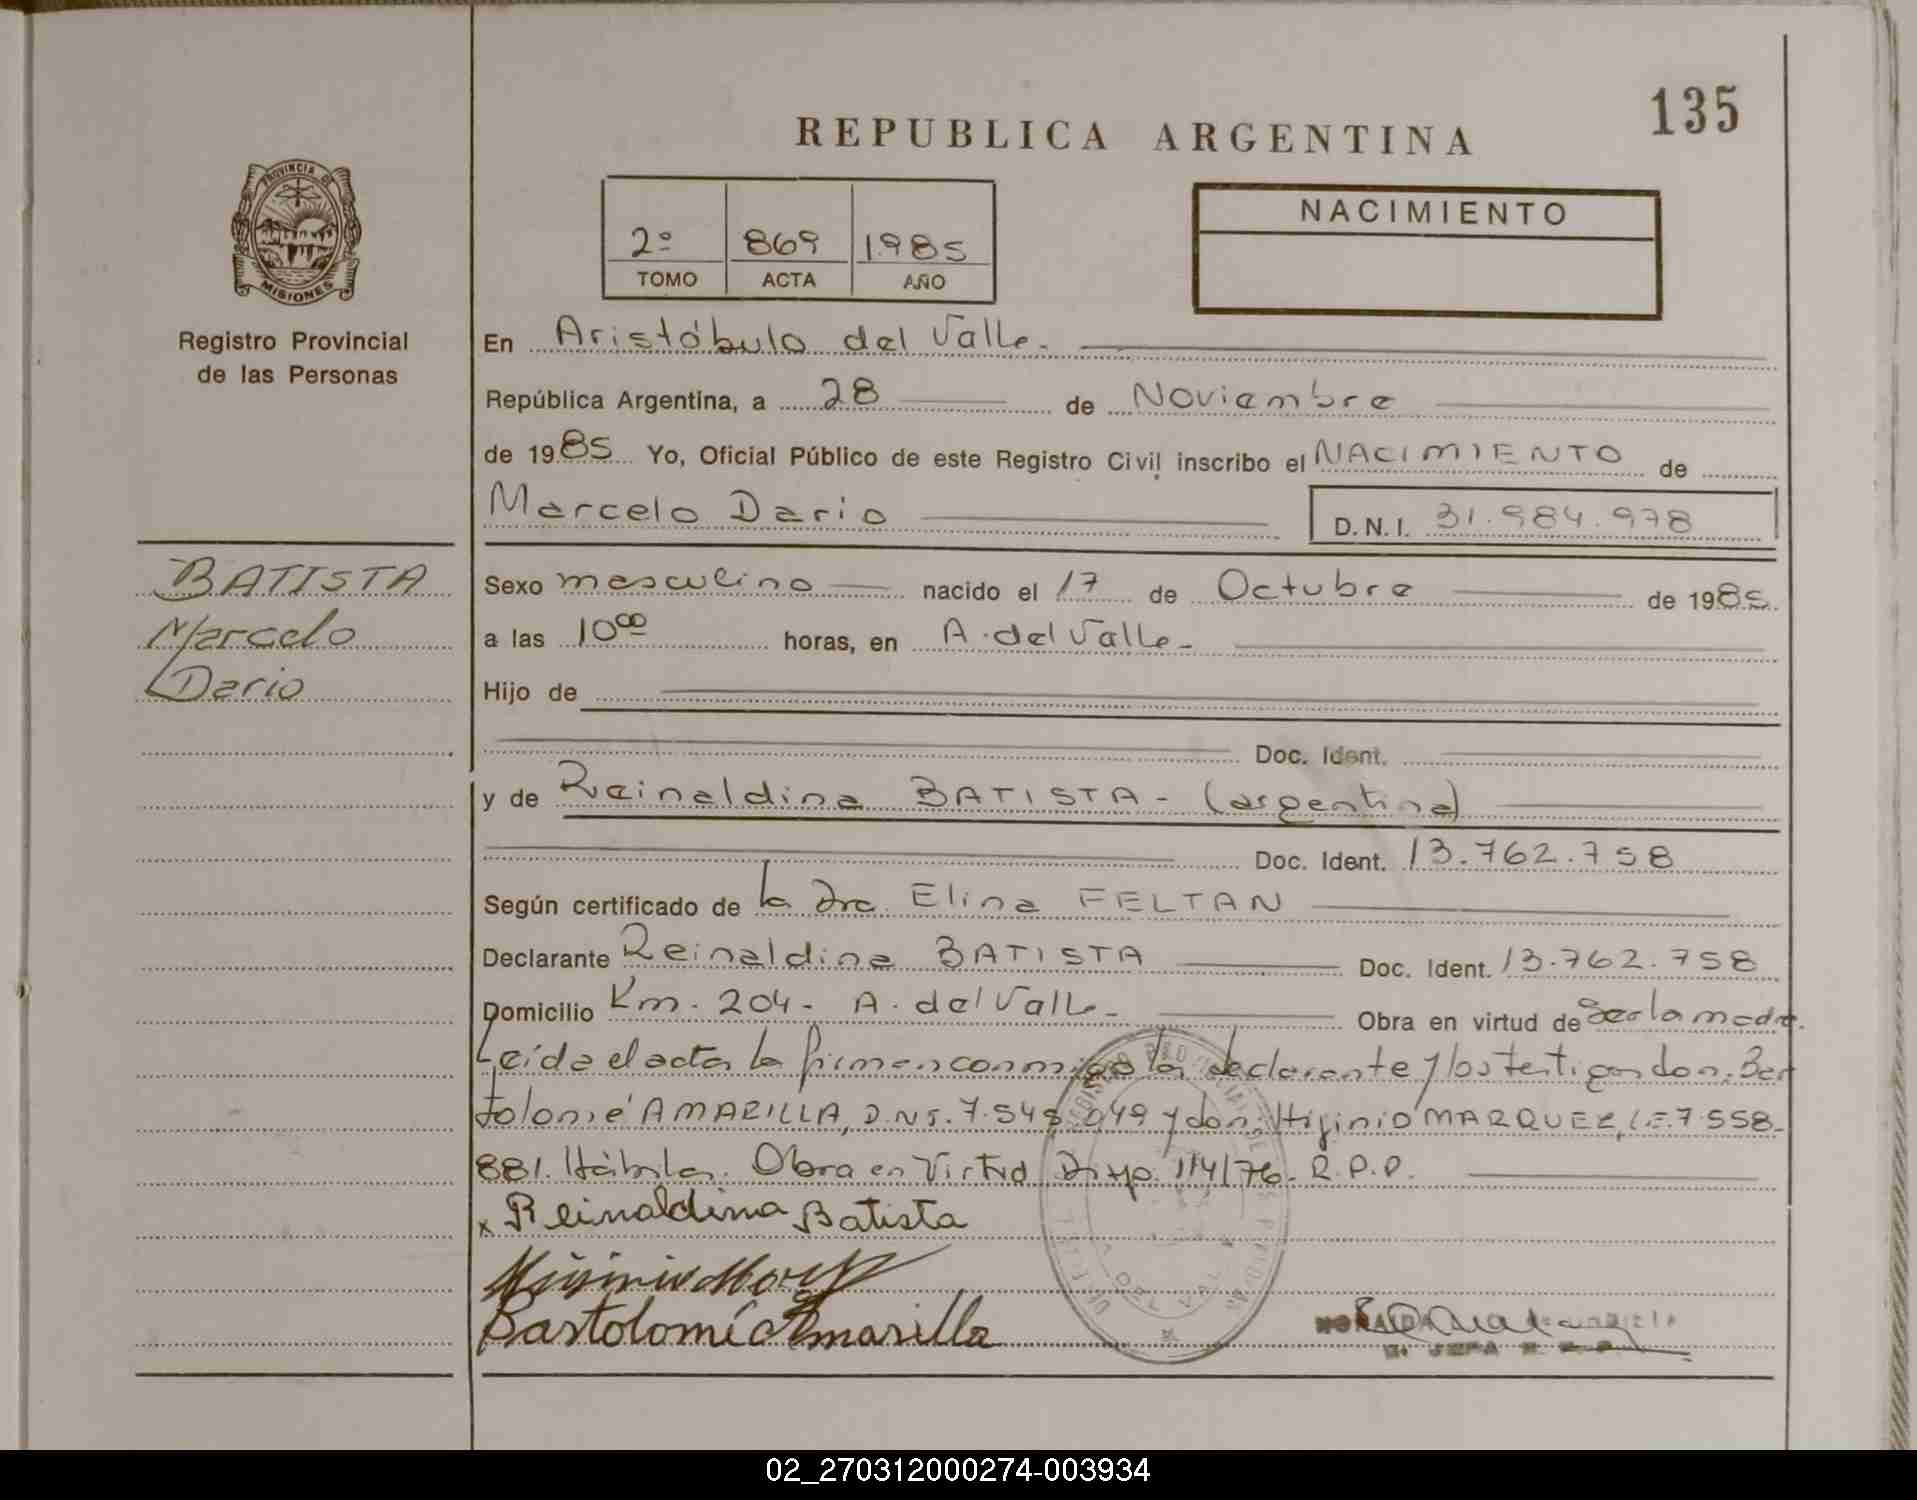 135
REPUBLICA ARGENTINA
PROVINCIA DE
MISIONES
Registro Provincial
de las Personas
2º 869 1985
TOMO ACTA AÑO
NACIMIENTO
En Aristóbulo del Valle.
República Argentina, a 28 de Noviembre
de 1985 Yo, Oficial Público de este Registro Civil inscribo el NACIMIENTO de
Marcelo Dario D.N.I. 31.984.978
BATISTA
Marcelo
Dario
Sexo masculino nacido el 17 de Octubre de 1985.
a las 10 00 horas, en A. del Valle.
Hijo de
Doc. Ident.
y de Reinaldina BATISTA - (argentina)
Doc. Ident. 13.762.758
Según certificado de la Dra. Elina FELTAN
Declarante Reinaldina BATISTA Doc. Ident. 13.762.758
Domicilio Km. 204 - A. del Valle. Obra en virtud de ser la madre.
Leida el acta la firman conmigo la declarante y los testigos don. Bar
tolomé AMARILLA, D.N.I. 7.548.049 y don. Higinio MARQUEZ, L.E. 7.558.
881. Hábiles. Obra en Virtud Disp. 114/76. R.P.P.
x Reinaldina Batista
Bartolomé Amarilla
02_270312000274-003934